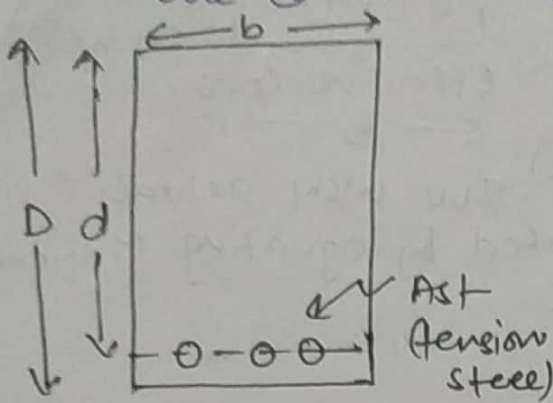 b
D d
Ast
(tension
steel)